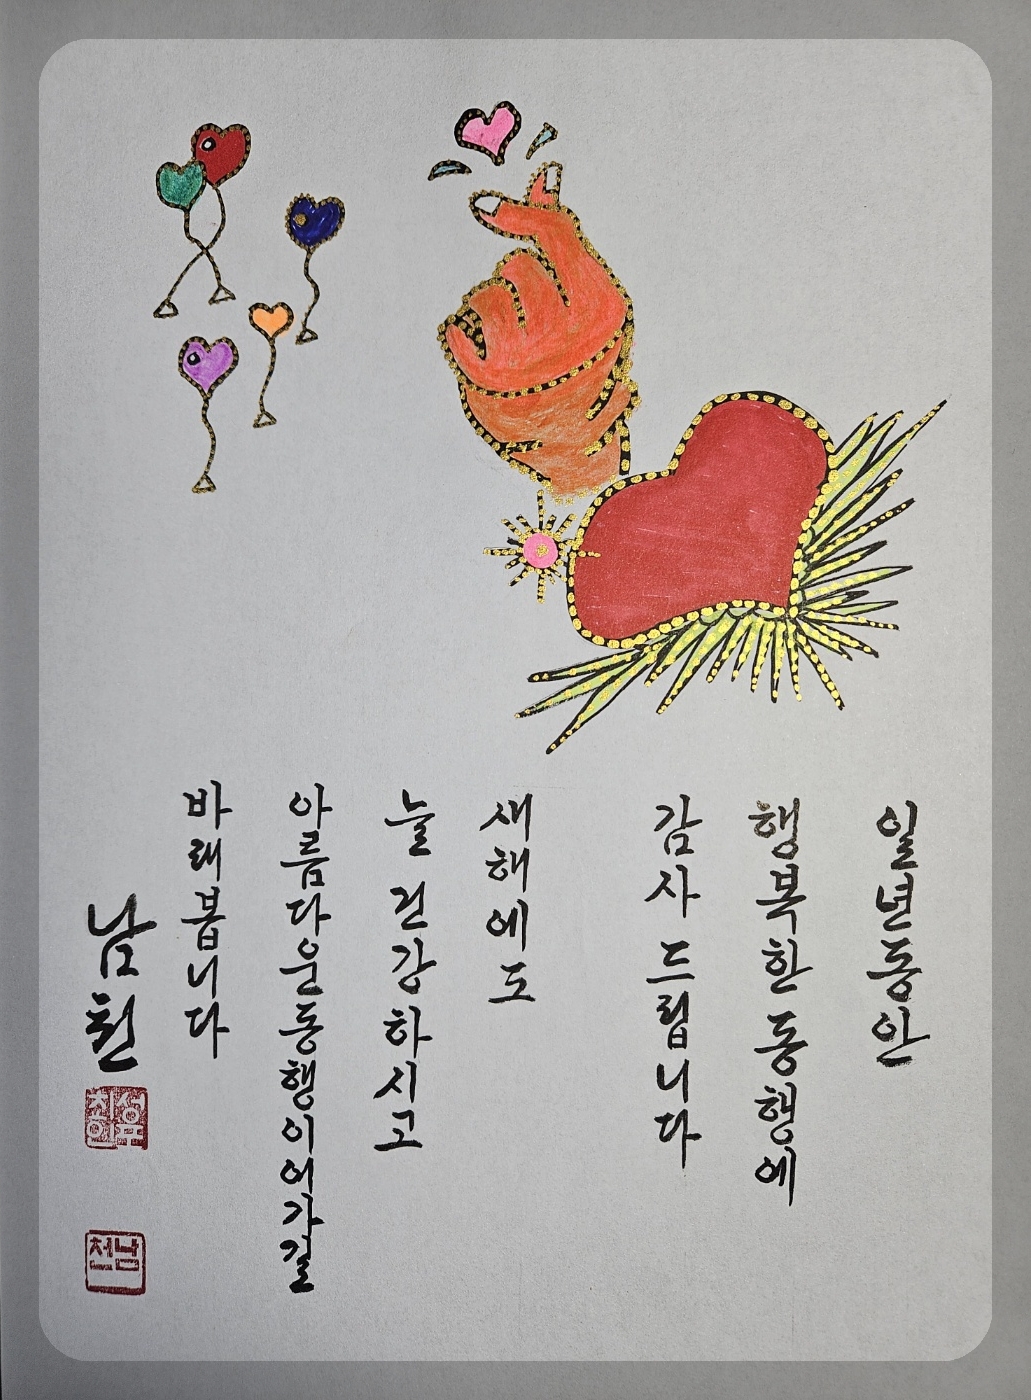 일년동안
행복한 동행에
감사 드립니다
새해에도
늘 건강하시고
아름다운 동행 이어가길
바래봅니다
남천
남천